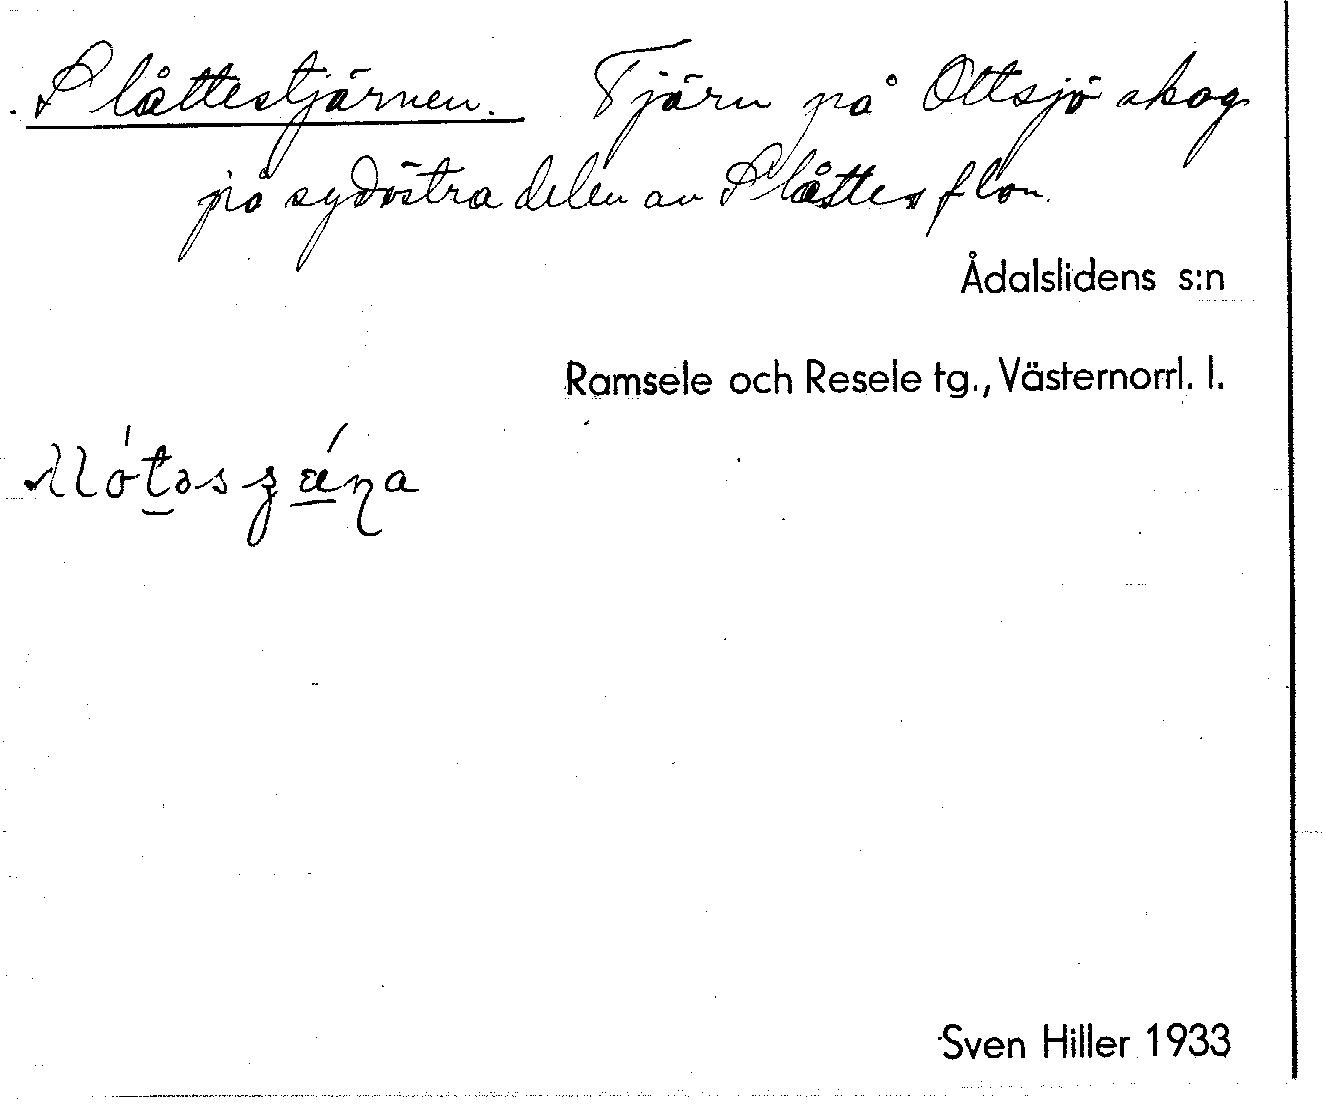 Slåttestjärnen. Tjärn på Ottsjö skog
på sydöstra delen av Slåttesflon.
Ådalslidens s:n
Ramsele och Resele tg., Västernorrl. l.
Sven Hiller 1933